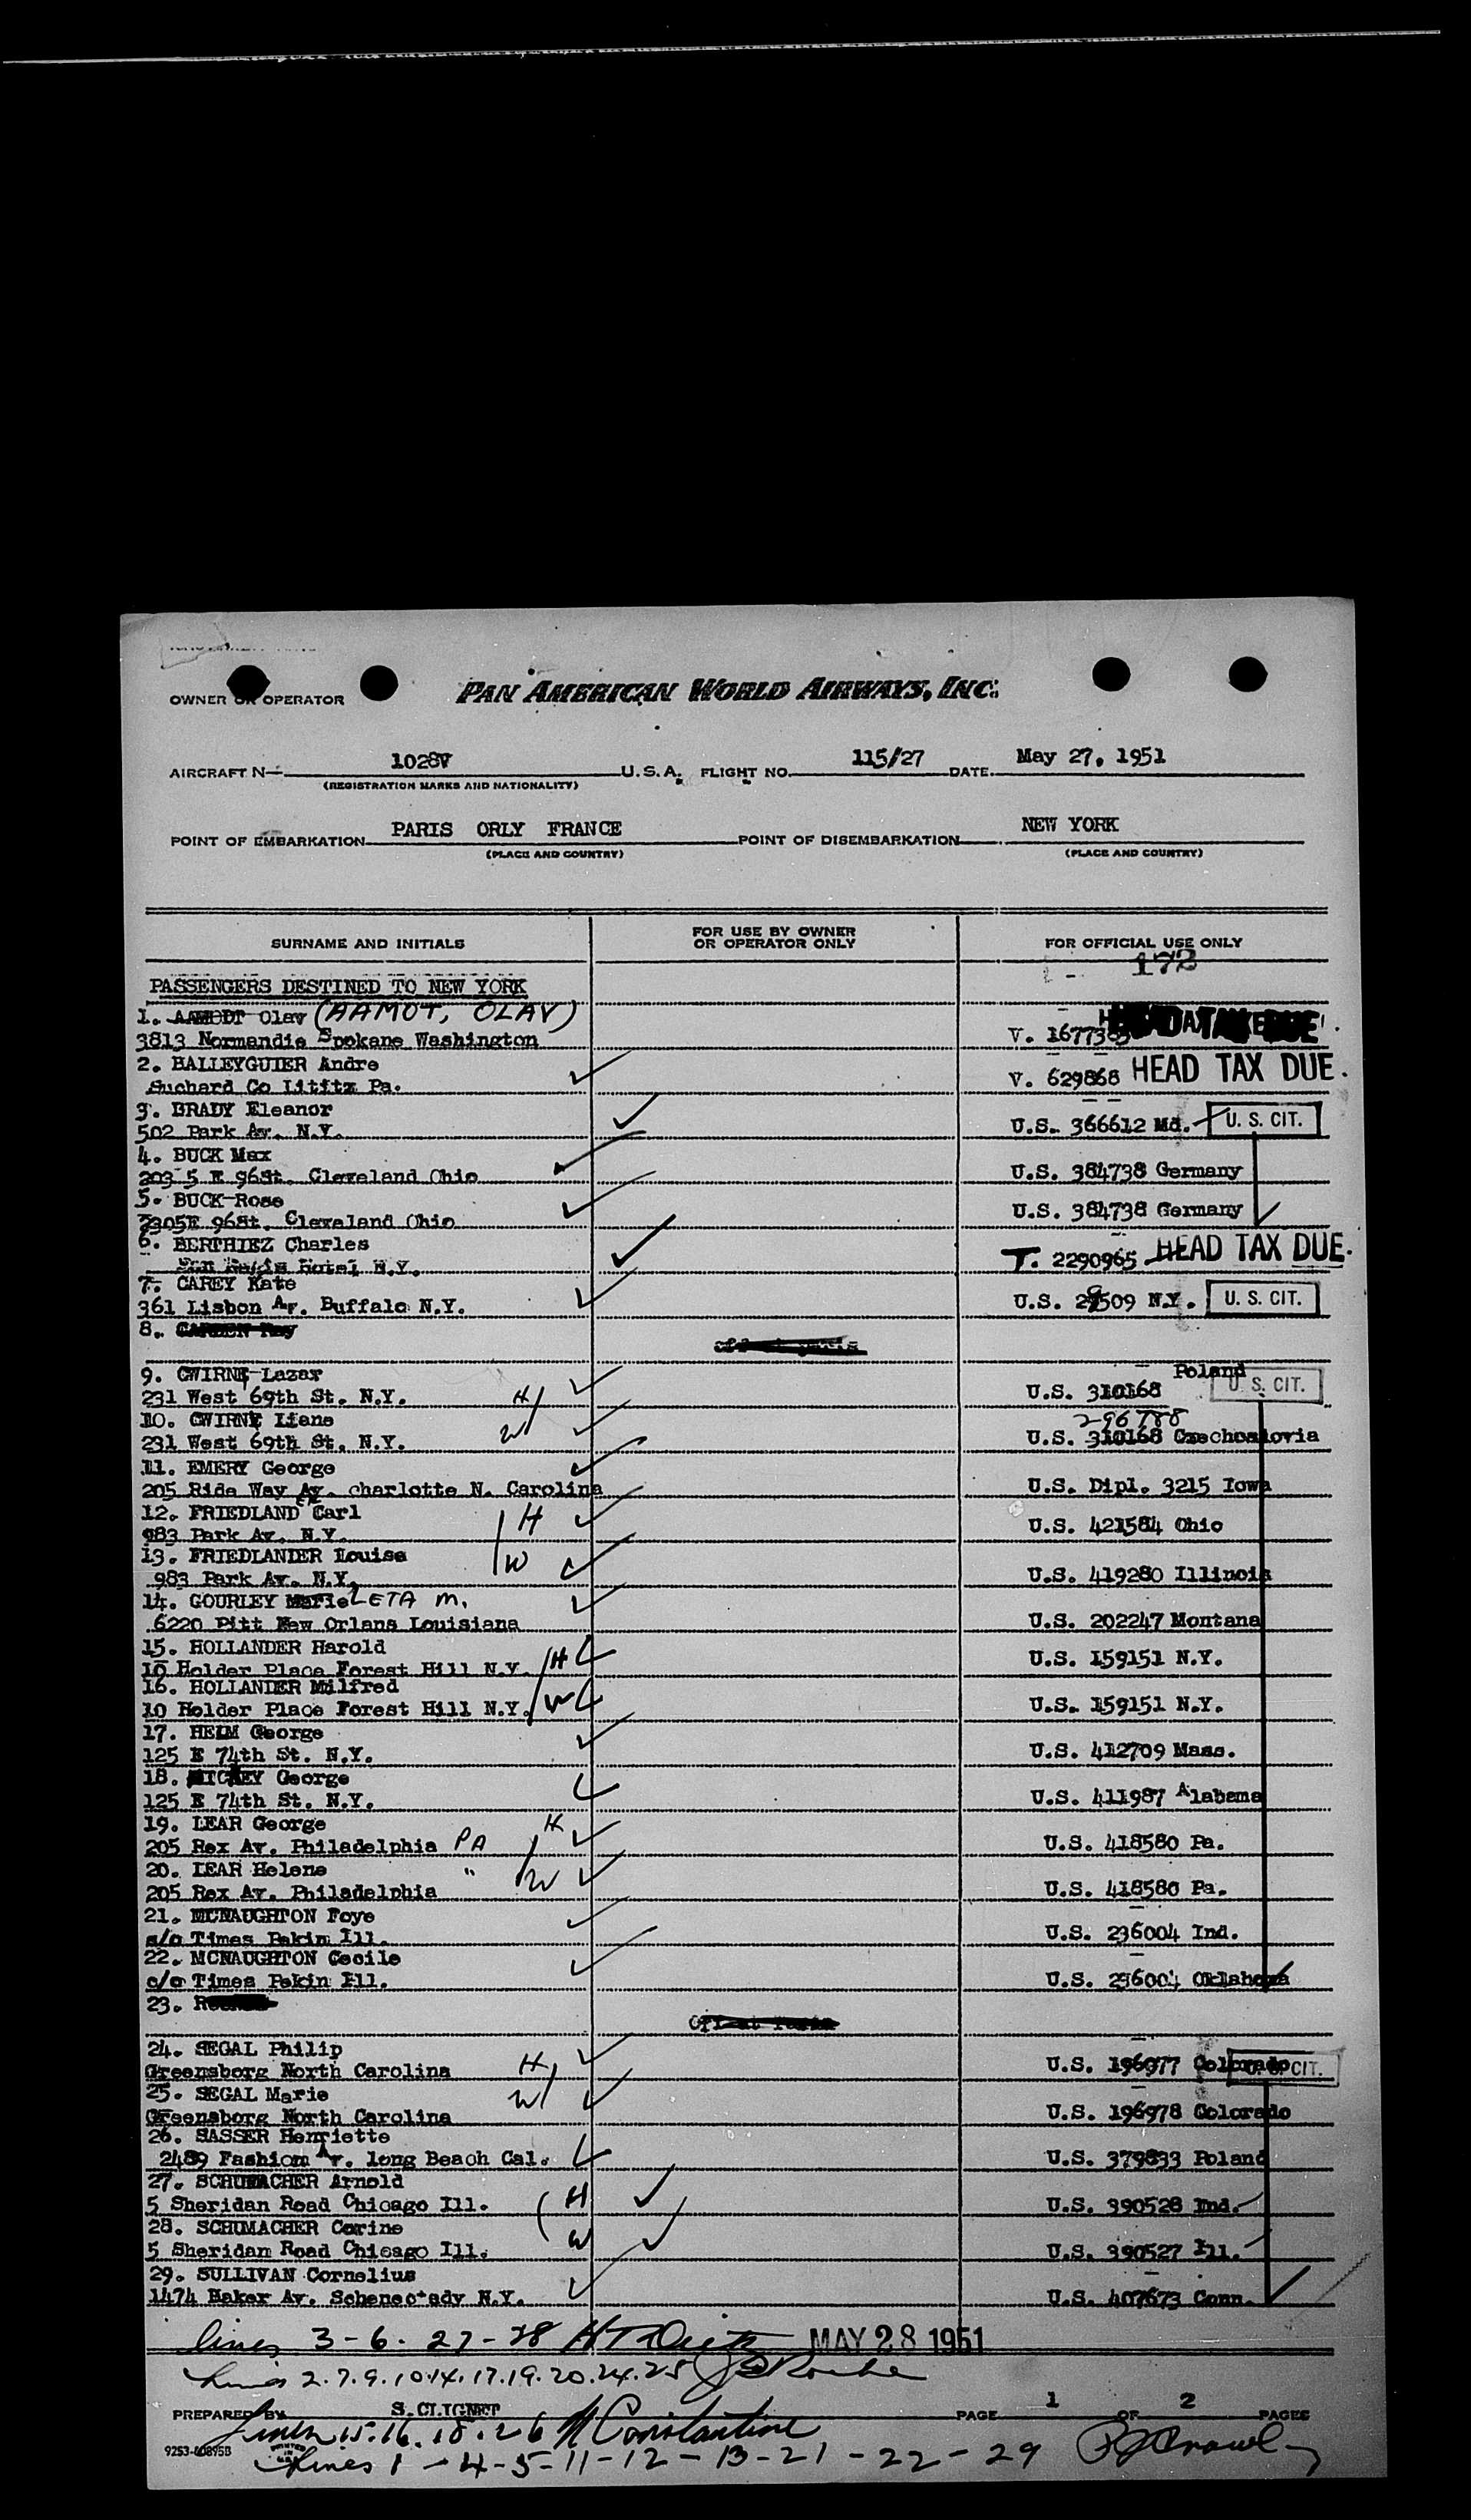 OWNER OR OPERATOR PAN AMERICAN WORLD AIRWAYS, INC.
AIRCRAFT N— 1028V U.S.A. FLIGHT NO. 115/27 DATE. May 27, 1951
(REGISTRATION MARKS AND NATIONALITY)
POINT OF EMBARKATION PARIS ORLY FRANCE POINT OF DISEMBARKATION NEW YORK
(PLACE AND COUNTRY) (PLACE AND COUNTRY)
SURNAME AND INITIALS FOR USE BY OWNER OR OPERATOR ONLY FOR OFFICIAL USE ONLY
172
PASSENGERS DESTINED TO NEW YORK
1. AAMODT Olav (AAMOT, OLAV)
3813 Normandie Spokane Washington V. 1677383
2. BALLEYGUIER Andre
Suchard Co Lititz Pa. V. 629868 HEAD TAX DUE.
3. BRADY Eleanor
502 Park Av. N.Y. U.S. 366612 Md. U. S. CIT.
4. BUCK Max
203 5 E 96St. Cleveland Ohio U.S. 384738 Germany
5. BUCK Rose
2305E 96St. Cleveland Ohio U.S. 384738 Germany
6. BERTHIEZ Charles
Hotel N.Y. T. 2290965 HEAD TAX DUE.
7. CAREY Kate
361 Lisbon Av. Buffalo N.Y. U.S. 29509 N.Y. U. S. CIT.
8. CARDEN Ray
9. CWIRNE Lazar Poland
231 West 69th St. N.Y. H U.S. 310168 U. S. CIT.
10. CWIRNE Liane 296788
231 West 69th St. N.Y. W U.S. 310168 Czechoslovia
11. EMERY George
205 Ride Way Av. charlotte N. Carolina U.S. Dipl. 3215 Iowa
12. FRIEDLAND ER Carl H
983 Park Av. N.Y. U.S. 421584 Ohio
13. FRIEDLANDER Louise W
983 Park Av. N.Y. U.S. 419280 Illinois
14. GOURLEY Marie LETA M.
6220 Pitt New Orlans Louisiana U.S. 202247 Montana
15. HOLLANDER Harold
10 Holder Place Forest Hill N.Y. H U.S. 159151 N.Y.
16. HOLLANDER Milfred
10 Holder Place Forest Hill N.Y. W U.S. 159151 N.Y.
17. HELM George
125 E 74th St. N.Y. U.S. 412709 Mass.
18. HICKEY George
125 E 74th St. N.Y. U.S. 411987 Alabama
19. LEAR George H
205 Rex Av. Philadelphia PA U.S. 418580 Pa.
20. LEAR Helene " W
205 Rex Av. Philadelphia U.S. 418580 Pa.
21. MCNAUGHTON Foye
c/o Times Pekin Ill. U.S. 236004 Ind.
22. MCNAUGHTON Cecile
c/o Times Pekin Ill. U.S. 236004 Oklahoma
23.
24. SEGAL Philip
Greensborg North Carolina H U.S. 196977 Colorado U. S. CIT.
25. SEGAL Marie W
Greensborg North Carolina U.S. 196978 Colorado
26. SASSER Henriette
2489 Fashiom Av. long Beach Cal. U.S. 379833 Poland
27. SCHUMACHER Arnold
5 Sheridan Road Chicago Ill. H U.S. 390528 Ind.
28. SCHUMACHER Corine
5 Sheridan Road Chicago Ill. W U.S. 390527 Ill.
29. SULLIVAN Cornelius
1474 Baker Av. Schenectady N.Y. U.S. 407673 Conn.
lines 3-6. 27-28 MAY 28 1951
Lines 2.7.9.10.14.17.19.20.24.25
PREPARED BY S. CLIGNET PAGE 1 OF 2 PAGES
Lines 15.16.18.26 Constantine
9253-60895B PRINTED IN U.S.A.
Lines 1-4-5-11-12-13-21-22-29